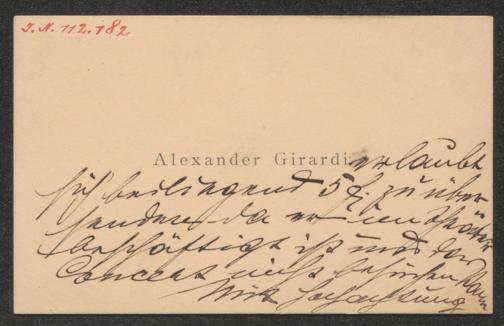 I. N. 112.182
Alexander Girardi erlaubt
sich beiliegend 5 fl. zu über
senden da er im Theater
beschäftigt ist und das
Concert nicht besuchen kann
Mit Hochachtung